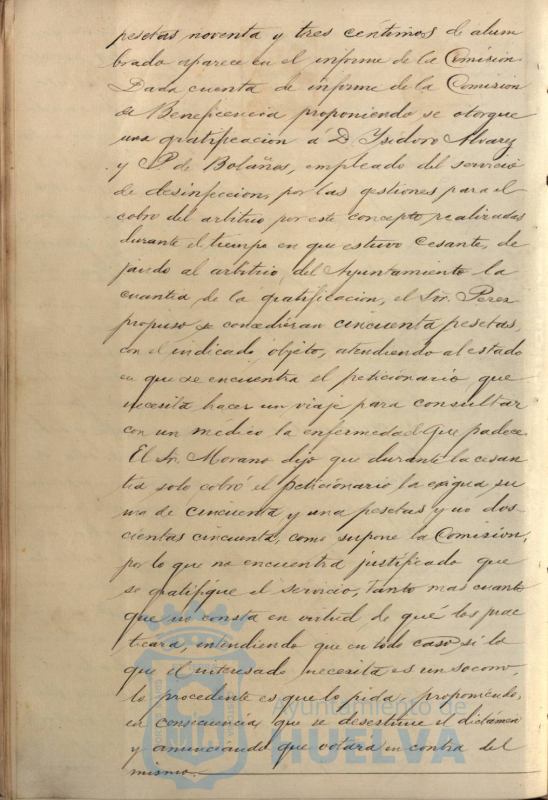 pesetas noventa y tres céntimos de alum
brado aparece en el informe de la Comisión.
Dada cuenta de informe de la Comision
de Beneficencia proponiendo se otorgue
una gratificacion á D. Isidoro Alvarez
y P. de Bolaños, empleado del servicio
de desinfeccion, por las gestiones para el
cobro del arbitrio por este concepto realizadas
durante el tiempo en que estuvo cesante, de
jando al arbitrio del Ayuntamiento la
cuantia de la gratificacion, el Sr. Perez
propuso se concedieran cincuenta pesetas,
con el indicado objeto, atendiendo al estado
en que se encuentra el peticionario que
necesita hacer un viaje para consultar
con un médico la enfermedad que padece.
El Sr. Morano dijo que durante la cesan
tia solo cobró el peticionario la exigua su
ma de cincuenta y una pesetas y no dos
cientas cincuenta, como supone la Comision,
por lo que no encuentra justificado que
se gratifique el servicio, tanto mas cuanto
que no consta en virtud de qué los prac
ticara, entendiendo que en todo caso si lo
que el interesado necesita es un socorro,
lo procedente es que lo pida, proponiendo,
en consecuencia que se desestime el dictámen
y anunciando que votará en contra del
mismo.
Ayuntamiento de
HUELVA